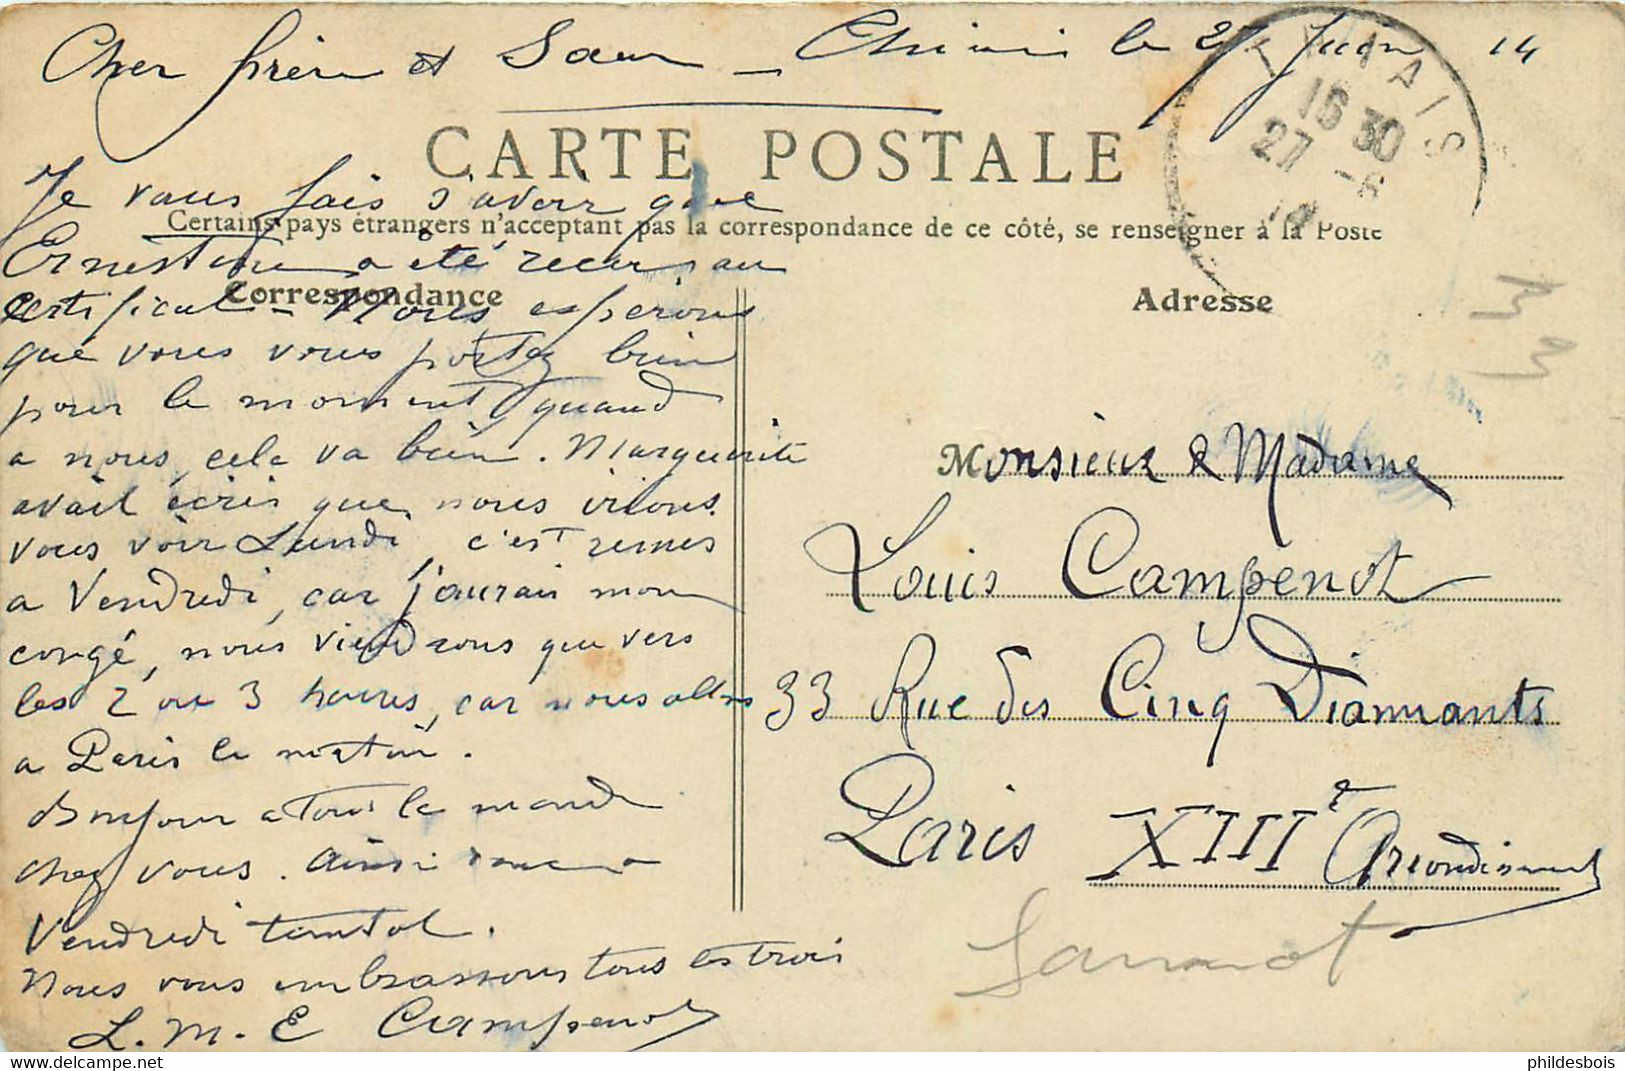 Cher frère et Sœur _ Thiais le 27 Juin 14
THIAIS
16 30
27 -6
14
CARTE POSTALE
Je vous fais s'avoir que
Certains pays étrangers n'acceptant pas la correspondance de ce côté, se renseigner à la Poste
Ernestine a été recu au
Correspondance
Adresse
certificat - Nous esperons
que vous vous portez bien
pour le moment quand
a nous, cela va bien. Marguerite
avait écris que nous irions
vous voir Lundi, c'est remis
a Vendredi, car j'aurais mon
congé, nous viendrons que vers
les 2 ou 3 heures, car nous allons
a Paris le matin.
Bonjour a Tous le monde
chez vous. Ainsi donc a
Vendredi tantot.
Nous vous embrassons tous les trois
L. M. E Campenot
Monsieur & Madame
Louis Campenot
33 Rue des Cinq Diamants
Paris XIIIe Arrondisment
phildesbois